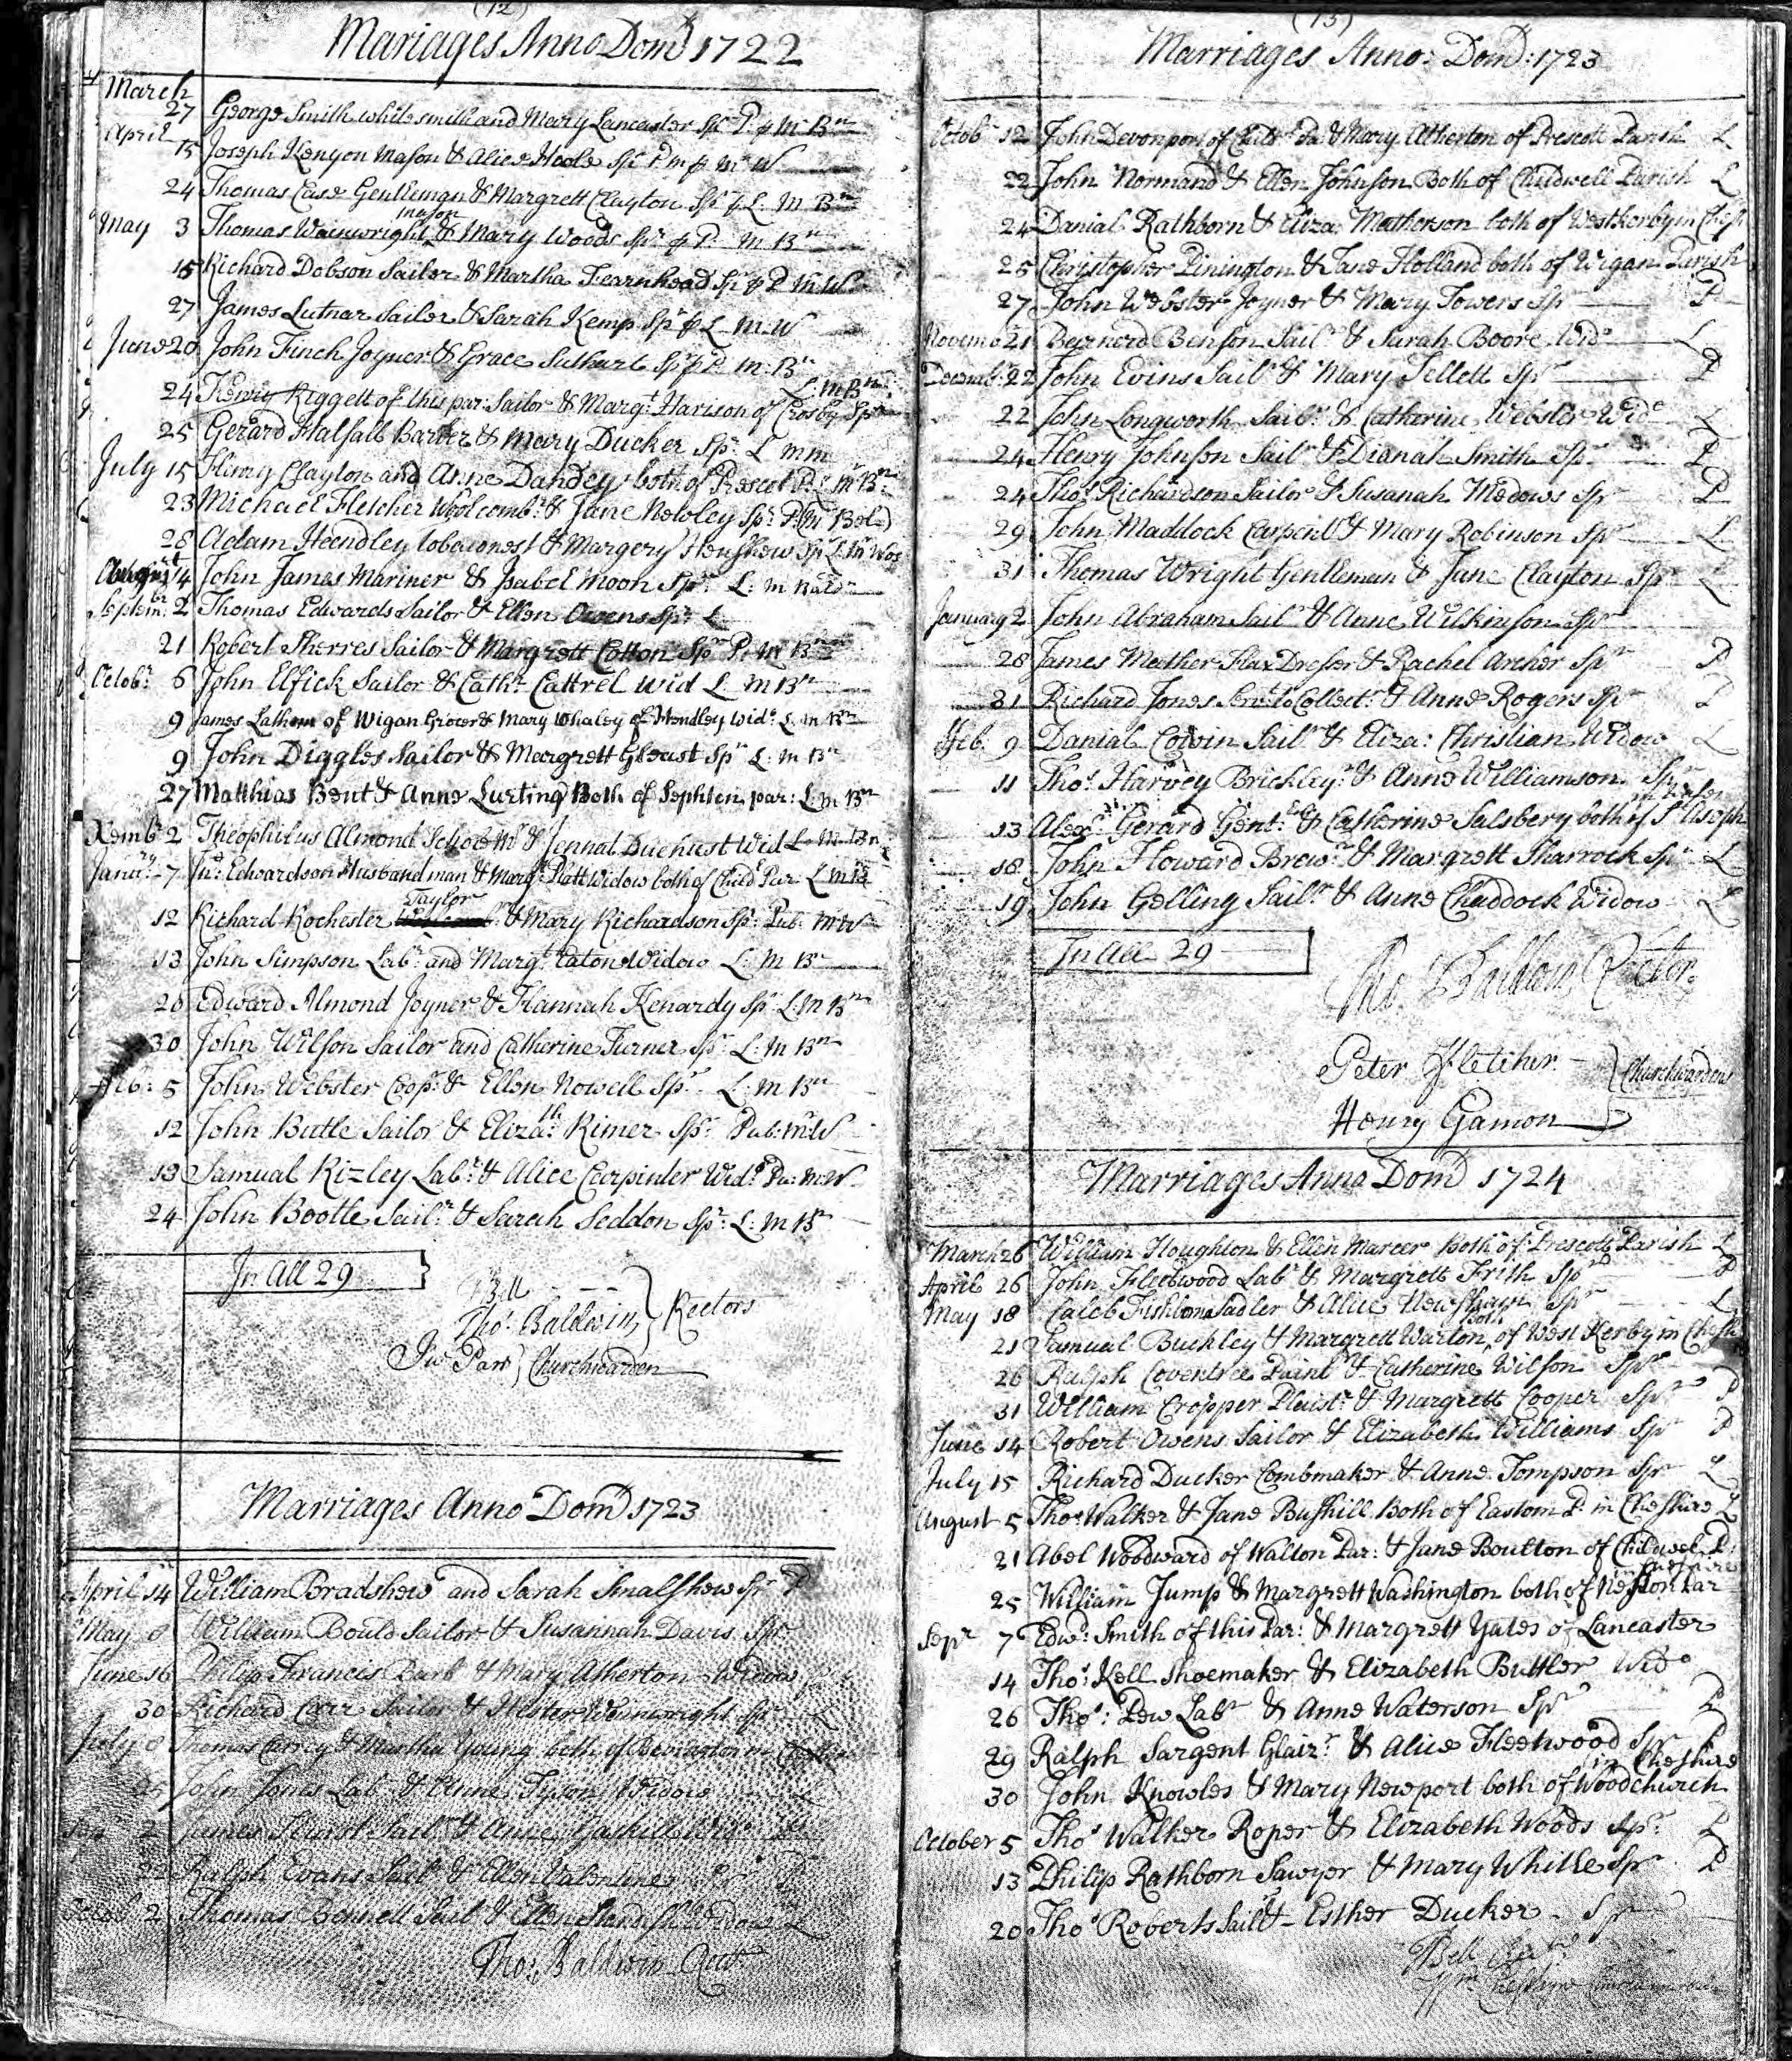 (12)
Mariages Anno Domd 1722
March
27 George Smith whitesmith and Mary Lancaster Spr P. p Mr Bn
April
15 Joseph Kenyon Mason & Alice Hoole Spr P m p Mr W
24 Thomas Case Gentleman & Margrett Clayton Spr p L: M Bn
mason
May 3 Thomas Wainwright & Mary Woods Spr p P. M Bn
15 Richard Dobson Sailor & Martha Fearnhead Spr p P M W
27 James Lutnar Sailor & Sarah Kemp Spr p L M W
June 20 John Finch Joyner & Grace Suthart Spr p P. m: Bn
L: m Bn
24 Henry Riggett of this par: Sailor & Margt Harison of Crosby Spr
25 Gerard Halsall Barber & Mary Ducker Spr L mm
July 15 Henry Clayton and Anne Dandey both of Prescot P: L: m Bn
23 Michael Fletcher Woolcombr & Jane Newley Spr P (m Bold)
28 Adam Hendley tobaconest & Margery Henshew Spr L: m Wor
August 14 John James Mariner & Isabel Moon Spr L: m Bald
Septembr 2 Thomas Edwards Sailor & Ellen Owens Spr L
21 Robert Sherres Sailor & Margrett Cotton Spr P: m Bn
Octobr 6 John Elfick Sailor & Cathr Cattrel Wid L m Bn
9 James Lathom of Wigan Grocer & Mary Whaley of Hendley Wido L: m Bn
9 John Diggles Sailor & Margrett Gleast Spr L: m Bn
27 Matthias Bent & Anne Lurting Both of Sephten par: L: m Bn
Xembr 2 Theophilus Almond Schole Mr & Jennat Duehurst Wid L M Bn
Janu: 7 Jno: Edwardson Husbandman & Margt Platt Widow both of Child Par L m B
Taylor
12 Richard Rochester & Mary Richardson Spr Pub: M W
13 John Simpson Labr and Margt Eaton Widow L: M Bn
20 Edward Almond Joyner & Hannah Kenardy Spr L: M Bn
30 John Wilson Sailor and Catherine Turner Spr L: M Bn
Feb: 5 John Webster Coopr & Ellen Nowell Spr L: m Bn
12 John Butle Sailor & Elizath Rimer Spr Pub: m W
13 Samual Rizley Labr & Alice Carpinter Wido Pu: M W
24 John Bootle Sailr & Sarah Seddon Spr: L: M Bn
In All 29
Bell
Tho: Baldwin } Rectors
Jno Parr } Churchwarden
Marriages Anno Domd 1723
April 14 William Bradshew and Sarah Smalshew Spr P
May 8 William Bould Sailor & Susannah Davis Spr
June 16 Philip Francis Barb & Mary Atherton Widow
30 Richard Carr Sailor & Hester Wainwright Spr L
July 8 Thomas & Martha Young both of Bevington in
25 John Jones Labr & Anne Tyson Widow L
2 James Sailr & Anne Gaskill Wido
22 Ralph Evans Sailr & Ellen Valentine Spr P
2 Thomas Bennell Sail & Ellen Standish Widow L
Tho: Baldwin Rectr
(13)
Marriages Anno: Domd: 1723
Octobr 12 John Devonport of Childl Pa & Mary Atherton of Prescott Parish L
22 John Normand & Ellen Johnson Both of Childwell Parish L
24 Danial Rathborn & Eliza: Matherson both of Westkerby in Chesr
25 Christopher Pinington & Jane Holland both of Wigan Parish
27 John Webster Joyner & Mary Towers Spr P
Novemr 21 Bernerd Benson Sailr & Sarah Boore Wido L
Decembr 22 John Evins Sailr & Mary Tellett Spr P
22 John Longworth Sailr & Catherine Webster Wido L
24 Henry Johnson Sailr & Dianah Smith Spr P
24 Thos Richardson Sailor & Susanah Medows Spr P
29 John Maddock Carpentr & Mary Robinson Spr L
31 Thomas Wright Gentleman & Jane Clayton Spr L
January 2 John Abraham Sailr & Anne Wilkinson Spr
28 James Mather Flax Dresser & Rachel Archer Spr P
31 Richard Jones Servt to Collectr & Anne Rogers Spr P
Feb: 9 Danial Cowin Sailr & Eliza: Christian Widow L
11 Thos Harvey Brickleyr & Anne Williamson Spr
13 Alexr Gerard Gent: & Catherine Salsbery both of St Aseph
18 John Howard Brewr & Margrett Sharrock Spr L
19 John Gelling Sailr & Anne Chaddock Widow L
In All 29
Tho. Baldwin Rector
Peter Fletcher
} Churchwardens
Henry Gamon
Marriages Anno Domd 1724
March 26 William Houghton & Ellin Marcer Both of Prescott Parish L
April 26 John Fleetwood Labr & Margrett Frith Spr P
May 18 Caleb Fishbone Sadler & Alice Newsham Spr L
Both
21 Samual Buckley & Margrett Warton of West Kerby in Chesh
26 Ralph Coventree Paintr & Catherine Wilson Spr
31 William Cropper Plaistr & Margrett Cooper Spr P
June 14 Robert Owens Sailor & Elizabeth Williams Spr P
July 15 Richard Ducker Combmaker & Anne Tompson Spr L
August 5 Thos Walker & Jane Bushill Both of Eastom P. in Cheshire L
21 Abel Woodward of Walton Par: & Jane Boulton of Childwel P:
in Cheshire
25 William Jump & Margrett Washington both of Neston Par
Sepr 7 Edwd: Smith of this Par: & Margrett Yates of Lancaster
14 Thos: Kell Shoemaker & Elizabeth Buttler Wido
26 Thos: Pew Labr & Anne Waterson Spr P
29 Ralph Sargent Glair & Alice Fleetwood Spr P
in Cheshire
30 John Knowles & Mary Newport both of Woodchurch
October 5 Thos Walker Roper & Elizabeth Woods Spr. L
13 Philip Rathborn Sawyer & Mary White Spr P
20 Thos Roberts Sailr & Esther Ducker Spr